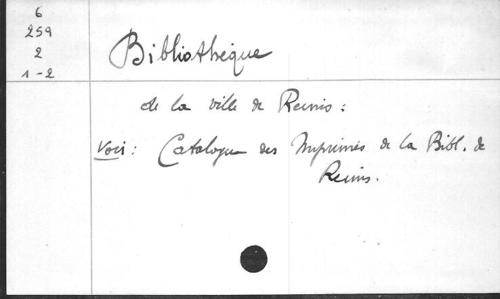 6
259
2
1-2
Bibliothèque
de la ville de Reims :
Voir : Catalogue des Imprimés de la Bibl. de
Reims.